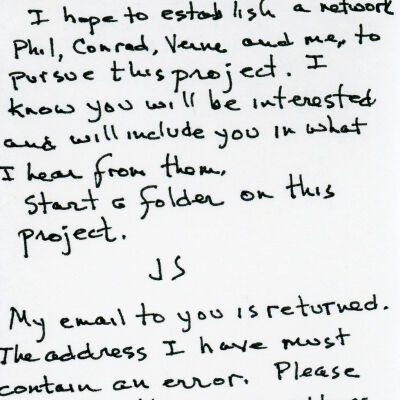 I hope to establish a network
Phil, Conrad, Verne and me, to
pursue this project. I
know you will be interested
and will include you in what
I hear from them.
Start a folder on this
project.
JS
My email to you is returned.
The address I have must
contain an error. Please